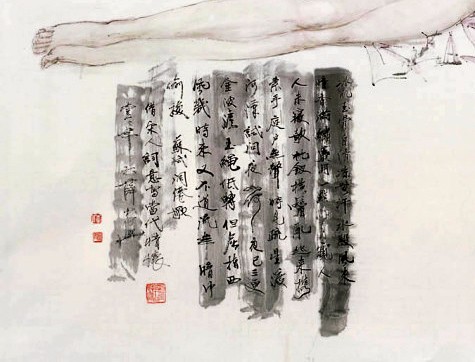 清涼無汗水殿風來
暗香滿繡簾開一點明月窺人
人未寢欹枕釵橫鬢亂起來攜
素手庭戶無聲時見疏星渡
河漢試問夜如何夜已三更
金波淡玉繩低轉但屈指西
風幾時來又不道流年暗中
偷換 蘇軾洞仙歌
借宋人詞意寫當代情懷